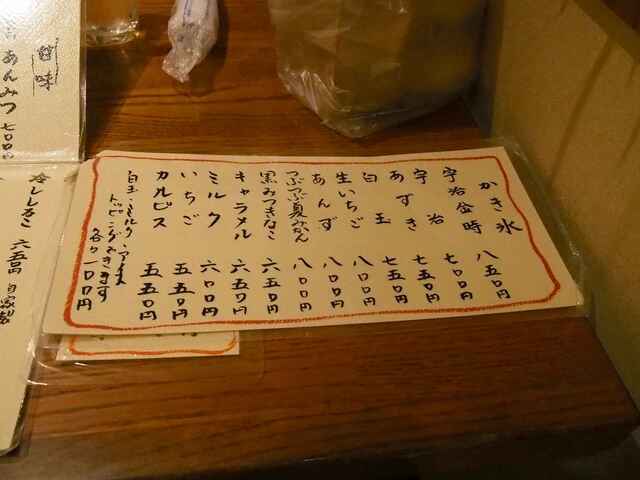 かき氷
宇治金時 八五〇円
宇治 七〇〇円
あずき 七五〇円
白玉 七五〇円
生いちご 八〇〇円
あんず 八〇〇円
つぶつぶ夏みかん 八〇〇円
黒みつきなこ 六五〇円
キャラメル 六五〇円
ミルク 六〇〇円
いちご 五五〇円
カルピス 五五〇円
白玉・ミルク・アイス
トッピングできます
各々一〇〇円
甘味
あんみつ 七〇〇
冷ししるこ 六五〇円 自家製